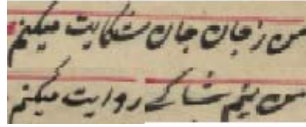 من ز جان جان شکایت میکنم
من نیم شاکے روایت میکنم